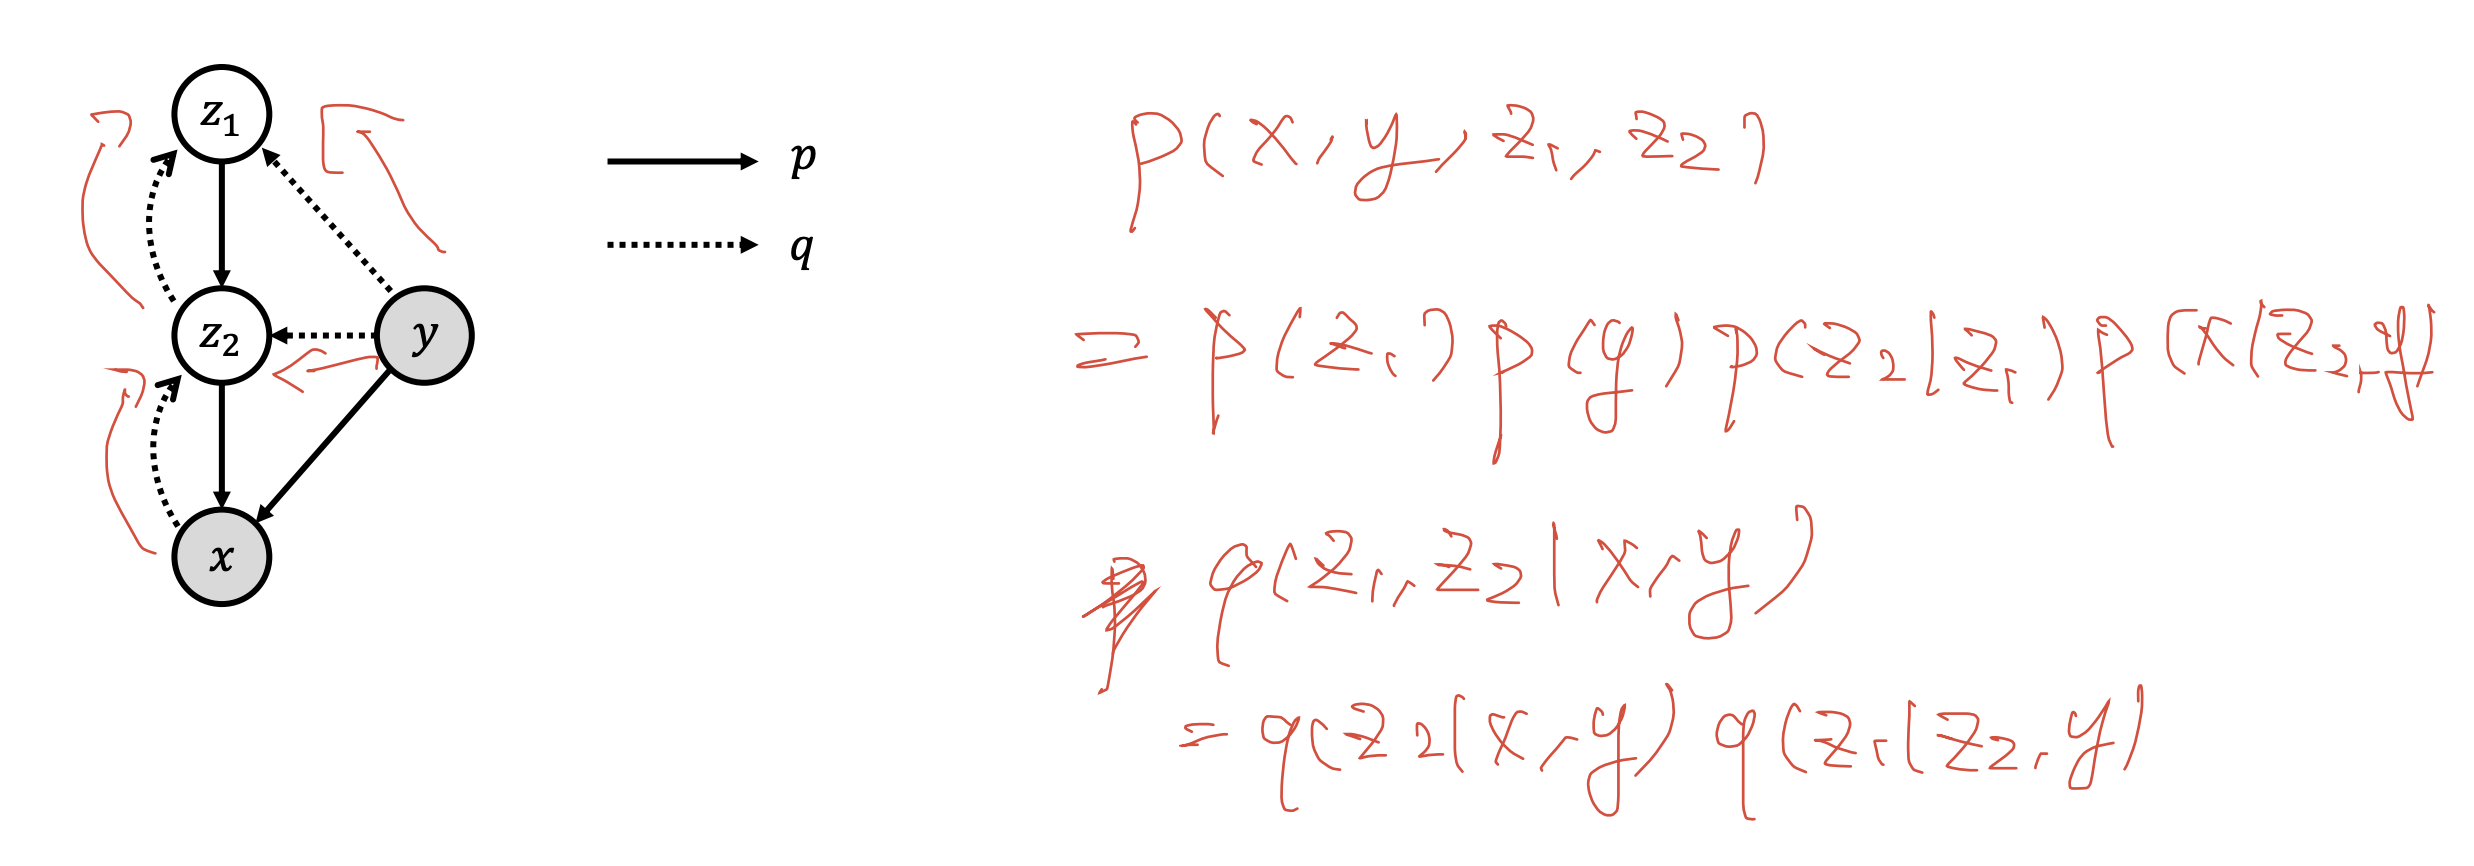 z₁
z₂
y
x
p
q
p(x, y, z₁, z₂)
= p(z₁) p(y) p(z₂|z₁) p(x|z₂, y)
q(z₁, z₂|x, y)
= q(z₂|x, y) q(z₁|z₂, y)